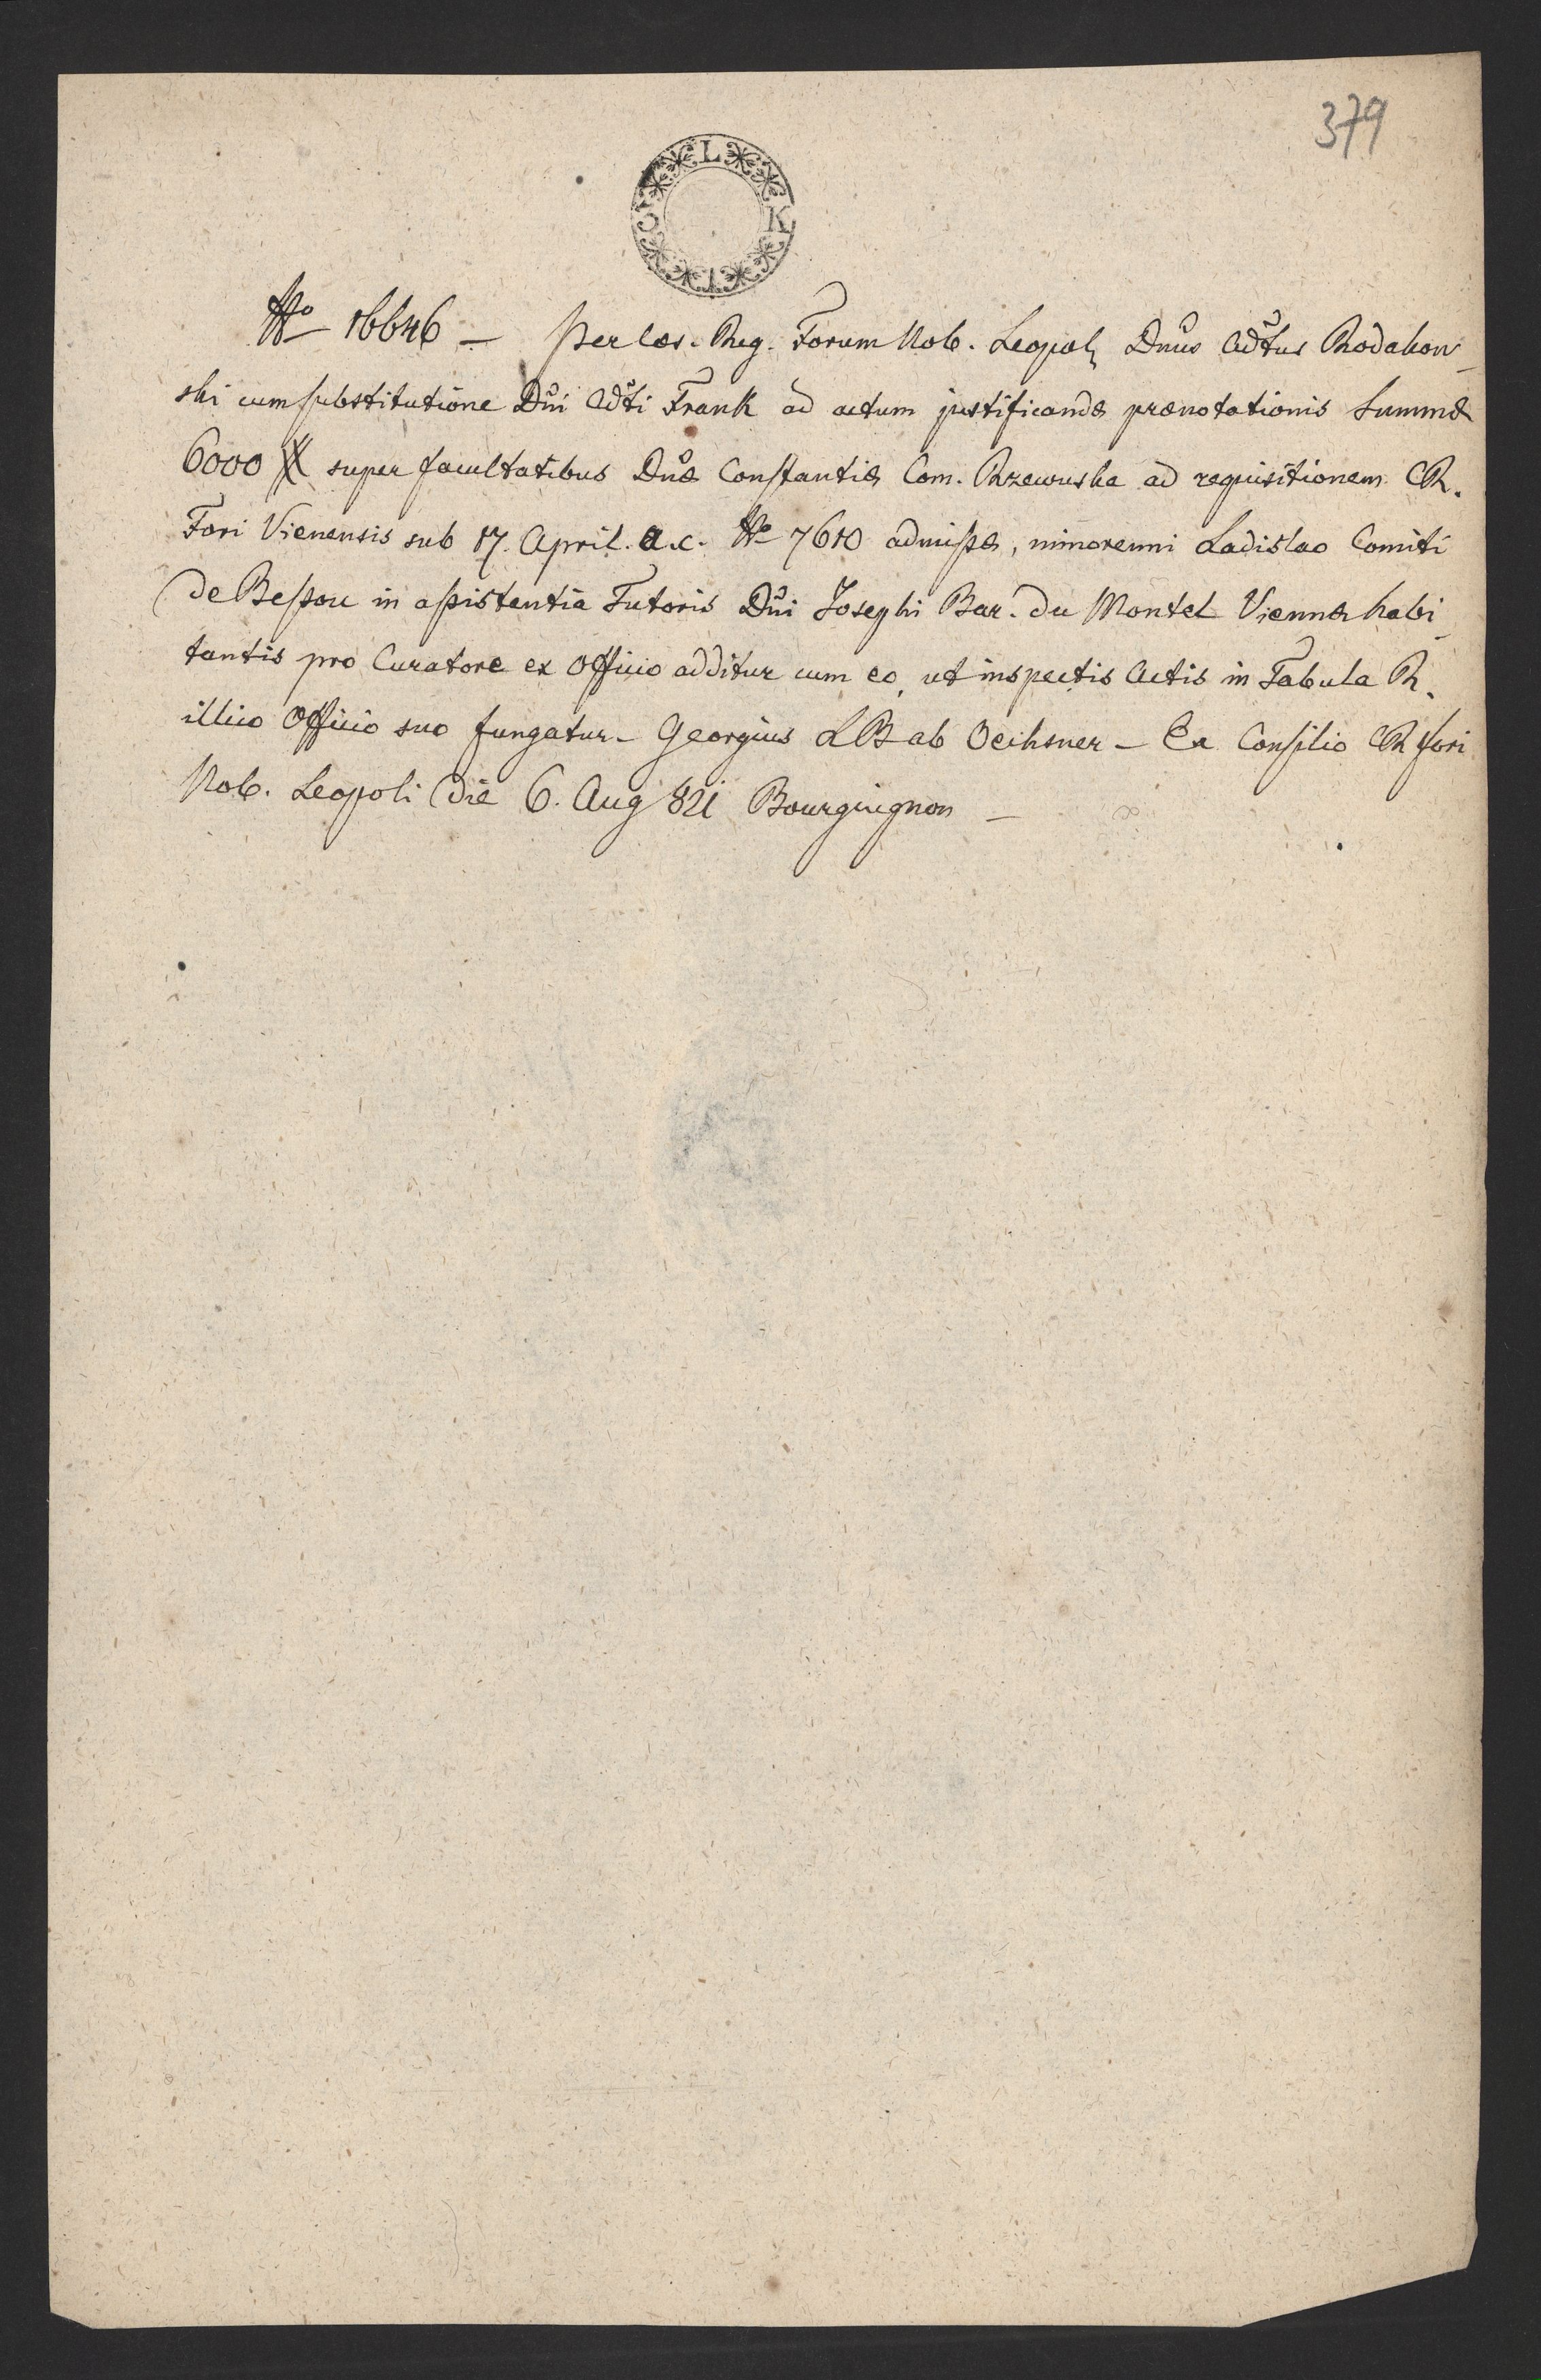 379
L K T C
No 16646 – Per Cæs. Reg. Forum Nob. Leopol. Dnus Adtus Rodakow-
ski cum substitutione Dni Adti Frank ad actum justificandæ prænotationis Summæ
6000 # super facultatibus Dnæ Constantiæ Com. Rzewuska ad requisitionem CR.
Fori Vienensis sub 17. April. a.c. No 7610 admissæ, minorenni Ladislao Comiti
de Bessou in assistentia Tutoris Dni Josephi Bar. du Montel Viennæ habi-
tantis pro Curatore ex Officio additur cum eo, ut inspectis Actis in Tabula R.
illico Officio suo fungatur – Georgius LB ab Oechsner – Ex Consilio CR fori
Nob. Leopoli die 6. Aug 821 Bourguignon –